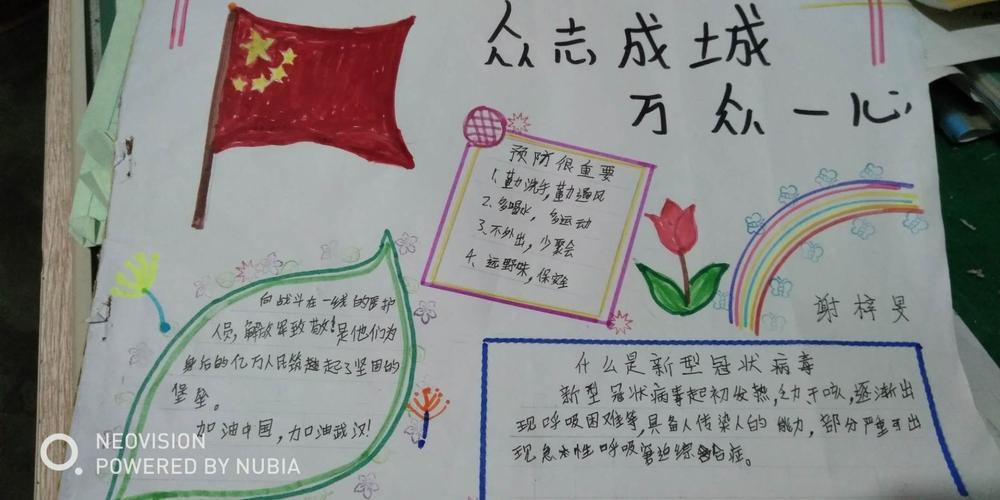 众志成城
万众一心
预防很重要
1.勤洗手,勤通风
2.多喝水,多运动
3.不外出,少聚会
4、远野味,保安全
谢梓旻
向战斗在一线的医护
人员,解放军致敬!是他们为
身后的亿万人民筑起了坚固的
堡垒。
加油中国,加油武汉!
什么是新型冠状病毒
新型冠状病毒起初发热,乏力干咳,逐渐出
现呼吸困难等,具备人传染人的能力,部分严重可出
现急性呼吸窘迫综合症。
NEOVISION
POWERED BY NUBIA